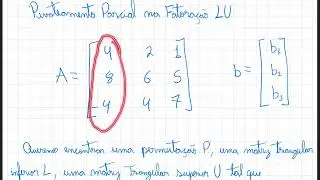 Pivoteamento Parcial na Fatoração LU
A = [ 4 2 1
8 6 5
-4 4 7 ]
b = [ b₁
b₂
b₃ ]
Queremos encontrar uma permutação P, uma matriz triangular
inferior L, uma matriz triangular superior U tal que